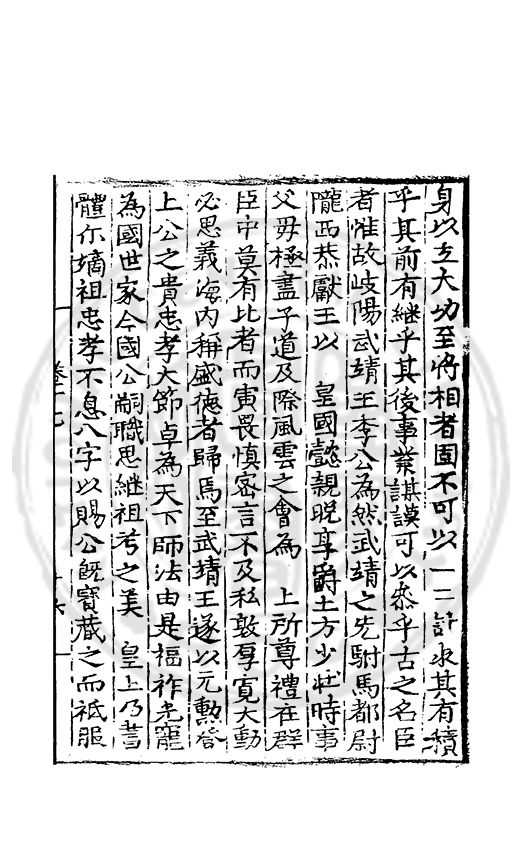 身以立大功至將相者固不可以一二計求其有積
乎其前有継乎其後事業謀謨可以叅乎古之名臣
者惟故岐陽武靖王李公為然武靖之先駙馬都尉
隴西恭獻王以　皇國懿親晚享爵土方少壮時事
父毋極盡子道及際風雲之會為　上所尊禮在群
臣中莫有比者而寅畏慎宻言不及私敦厚寛大動
必思義海内稱盛德者歸焉至武靖王遂以元勲啓
上公之貴忠孝大節卓為天下師法由是福祚光寵
為國世家今國公嗣職思継祖考之美　皇上乃書
體尓嫡祖忠孝不息八字以賜公旣寳藏之而祗服
卷十七
十六